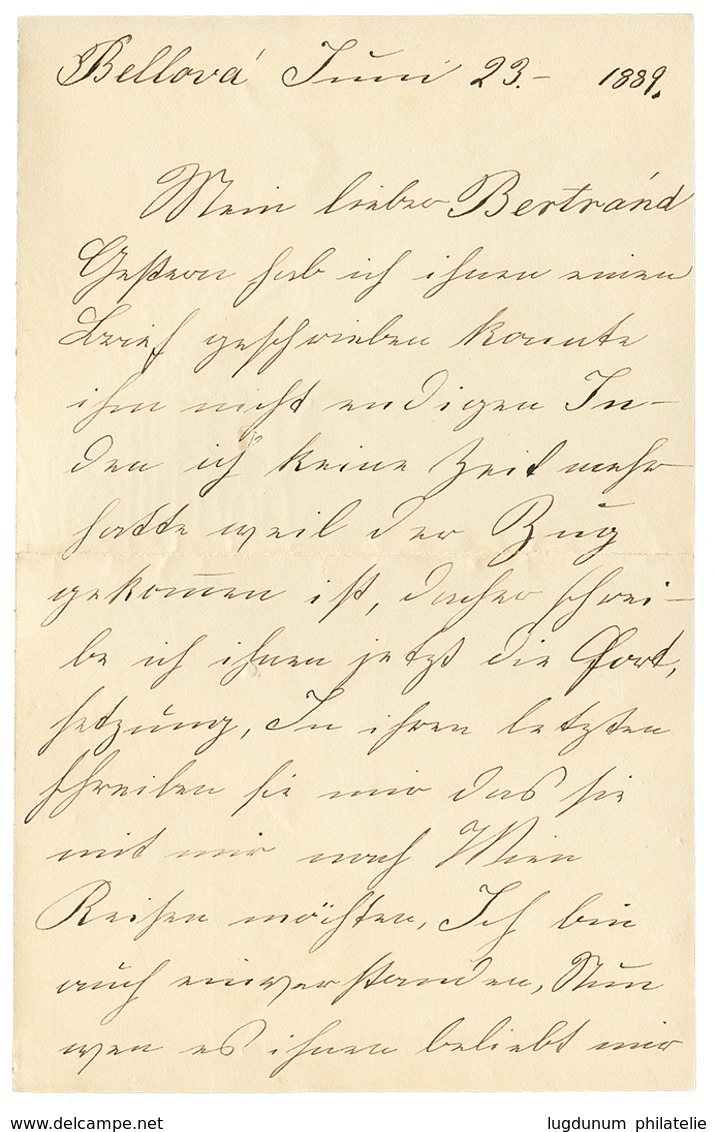 Bellová Juni 23.- 1889.
Mein lieber Bertránd
Gestern hab ich ihnen einen
Brief geschrieben konnte
ihn nicht endigen In-
den ich keine Zeit mehr
hatte weil der Zug
gekom̅en ist, daher schrei-
be ich ihnen jetzt die Fort,
setzung, In ihren letzten
Schreiben sie mir das sie
mit mir nach Wien
Reisen möchten, Ich bin
auch einverstanden, Nun
wen es ihnen beliebt mir
lugdunum philatelie